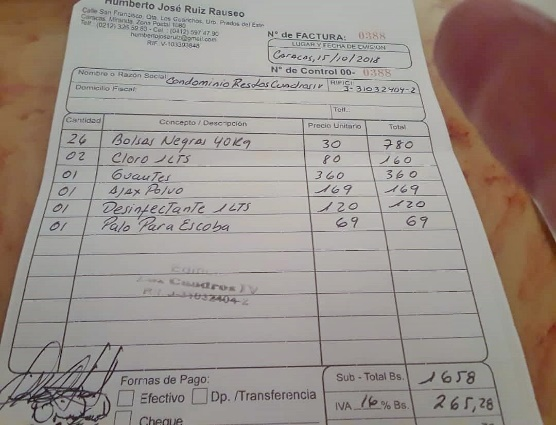 Humberto José Ruiz Rauseo
Calle San Francisco, Qta. Los Guarichos, Urb. Prados del Este
Caracas, Miranda, Zona Postal 1080
humbertojoseruiz@gmail.com
N° de FACTURA: 0388
LUGAR Y FECHA DE EMISIÓN
Caracas, 15/10/2018
N° de Control 00- 0388
Nombre o Razón Social: Condominio Resd Los Cuadros IV
J-31032404-2
Domicilio Fiscal:
Telf.:
Cantidad Concepto / Descripción Precio Unitario Total
26 Bolsas Negras 40Kg 30 780
02 Cloro 1LTS 80 160
01 Guantes 360 360
01 Ajax Polvo 169 169
01 Desinfectante 1LTS 120 120
01 Palo Para Escoba 69 69
Los Cuadros IV
J-31032404-2
Formas de Pago:
Efectivo Dp. /Transferencia
Cheque
Sub - Total Bs. 1658
IVA 16 % Bs. 265,28